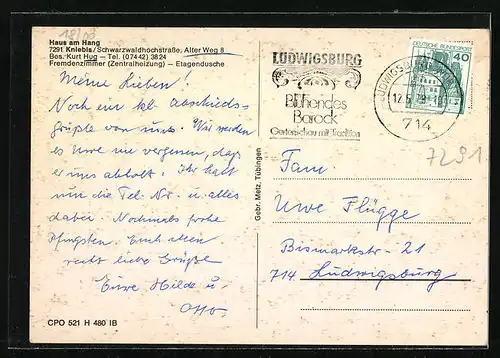 18/08
Haus am Hang
7291 Kniebis/Schwarzwaldhochstraße, Alter Weg 8
Bes. Kurt Hug — Tel. (07442) 3824
Fremdenzimmer (Zentralheizung) — Etagendusche
Meine Lieben!
Noch ein kl. Abschieds-
grüßle von uns. Wir werden
es Uwe nie vergessen, daß
er uns abholt. Ihr habt
nun die Tel.-Nr. u. alles
dabei. Nochmals frohe
Pfingsten. Euch allen
recht liebe Grüße
Eure Hilde u.
Otto
CPO 521 H 480 IB
Gebr. Metz, Tübingen
LUDWIGSBURG
Blühendes
Barock
Gartenschau mit Tradition
LUDWIGSBURG
12.5.
714
DEUTSCHE BUNDESPOST
40
7291
Fam.
Uwe Flügge
Bismarkstr. 21
714 Ludwigsburg